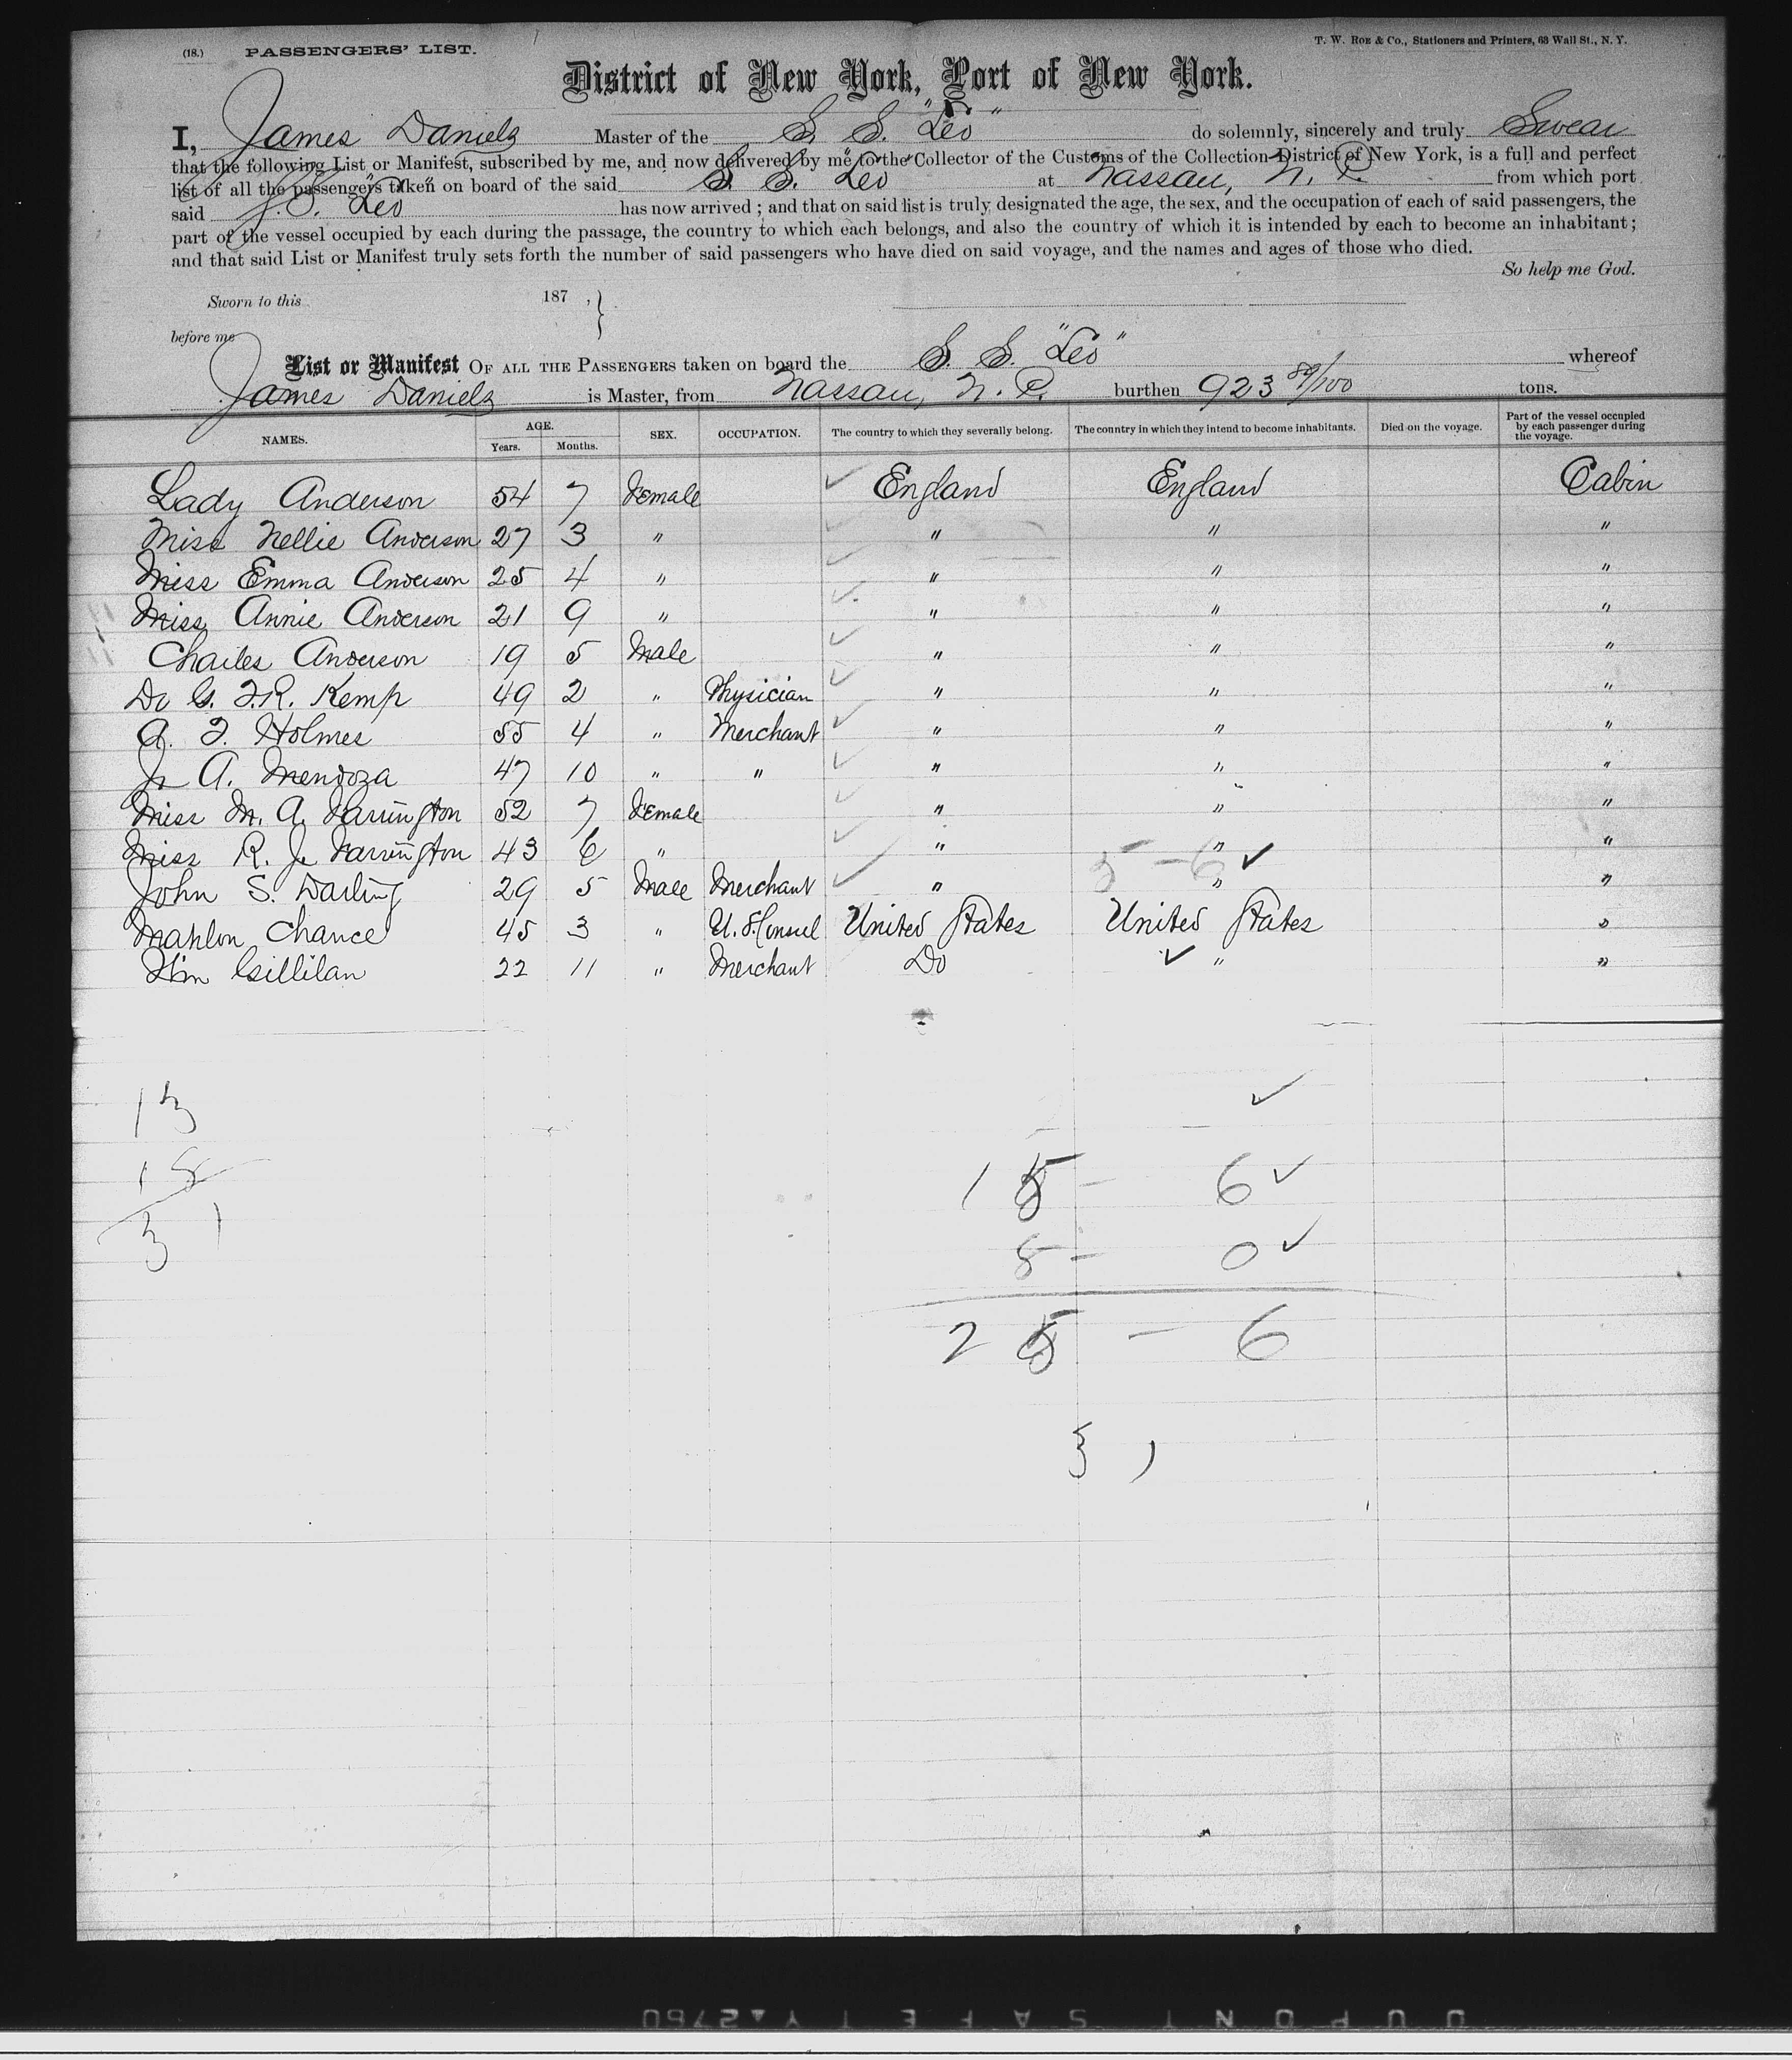 (18.) PASSENGERS' LIST. T. W. ROE & Co., Stationers and Printers, 63 Wall St., N. Y.
District of New York, Port of New York.
I, James Daniels Master of the S. S. "Leo" do solemnly, sincerely and truly Swear
that the following List or Manifest, subscribed by me, and now delivered by me to the Collector of the Customs of the Collection District of New York, is a full and perfect
list of all the passengers taken on board of the said S. S. "Leo" at Nassau, N. P. from which port
said S. S. "Leo" has now arrived; and that on said list is truly designated the age, the sex, and the occupation of each of said passengers, the
part of the vessel occupied by each during the passage, the country to which each belongs, and also the country of which it is intended by each to become an inhabitant;
and that said List or Manifest truly sets forth the number of said passengers who have died on said voyage, and the names and ages of those who died.
So help me God.
Sworn to this 187 , }
before me
List or Manifest OF ALL THE PASSENGERS taken on board the S. S. "Leo" whereof
James Daniels is Master, from Nassau, N. P. burthen 923 89/100 tons.
NAMES. AGE. Years. Months. SEX. OCCUPATION. The country to which they severally belong. The country in which they intend to become inhabitants. Died on the voyage. Part of the vessel occupied by each passenger during the voyage.
Lady Anderson 54 7 Female ✓ England England Cabin
Miss Nellie Anderson 27 3 " ✓ " " "
Miss Emma Anderson 25 4 " ✓ " " "
Miss Annie Anderson 21 9 " ✓ " " "
Charles Anderson 19 5 Male ✓ " " "
Dr G. T. R. Kemp 49 2 " Physician ✓ " " "
A. T. Holmes 55 4 " Merchant ✓ " " "
Jr A. Mendoza 47 10 " " ✓ " " "
Miss M. A. Farrington 52 7 Female ✓ " " "
Miss R. J. Farrington 43 6 " ✓ " " "
5 - 6 ✓
John S. Darling 29 5 Male Merchant ✓ " " "
Mahlon Chance 45 3 " U. S. Consul United States United States "
Wm Gillilan 22 11 " Merchant Do ✓ " "
13 ✓
18 1 - 6 ✓
31 8 - 0 ✓
2 - 6
31
DUPONT SAFETY 2760